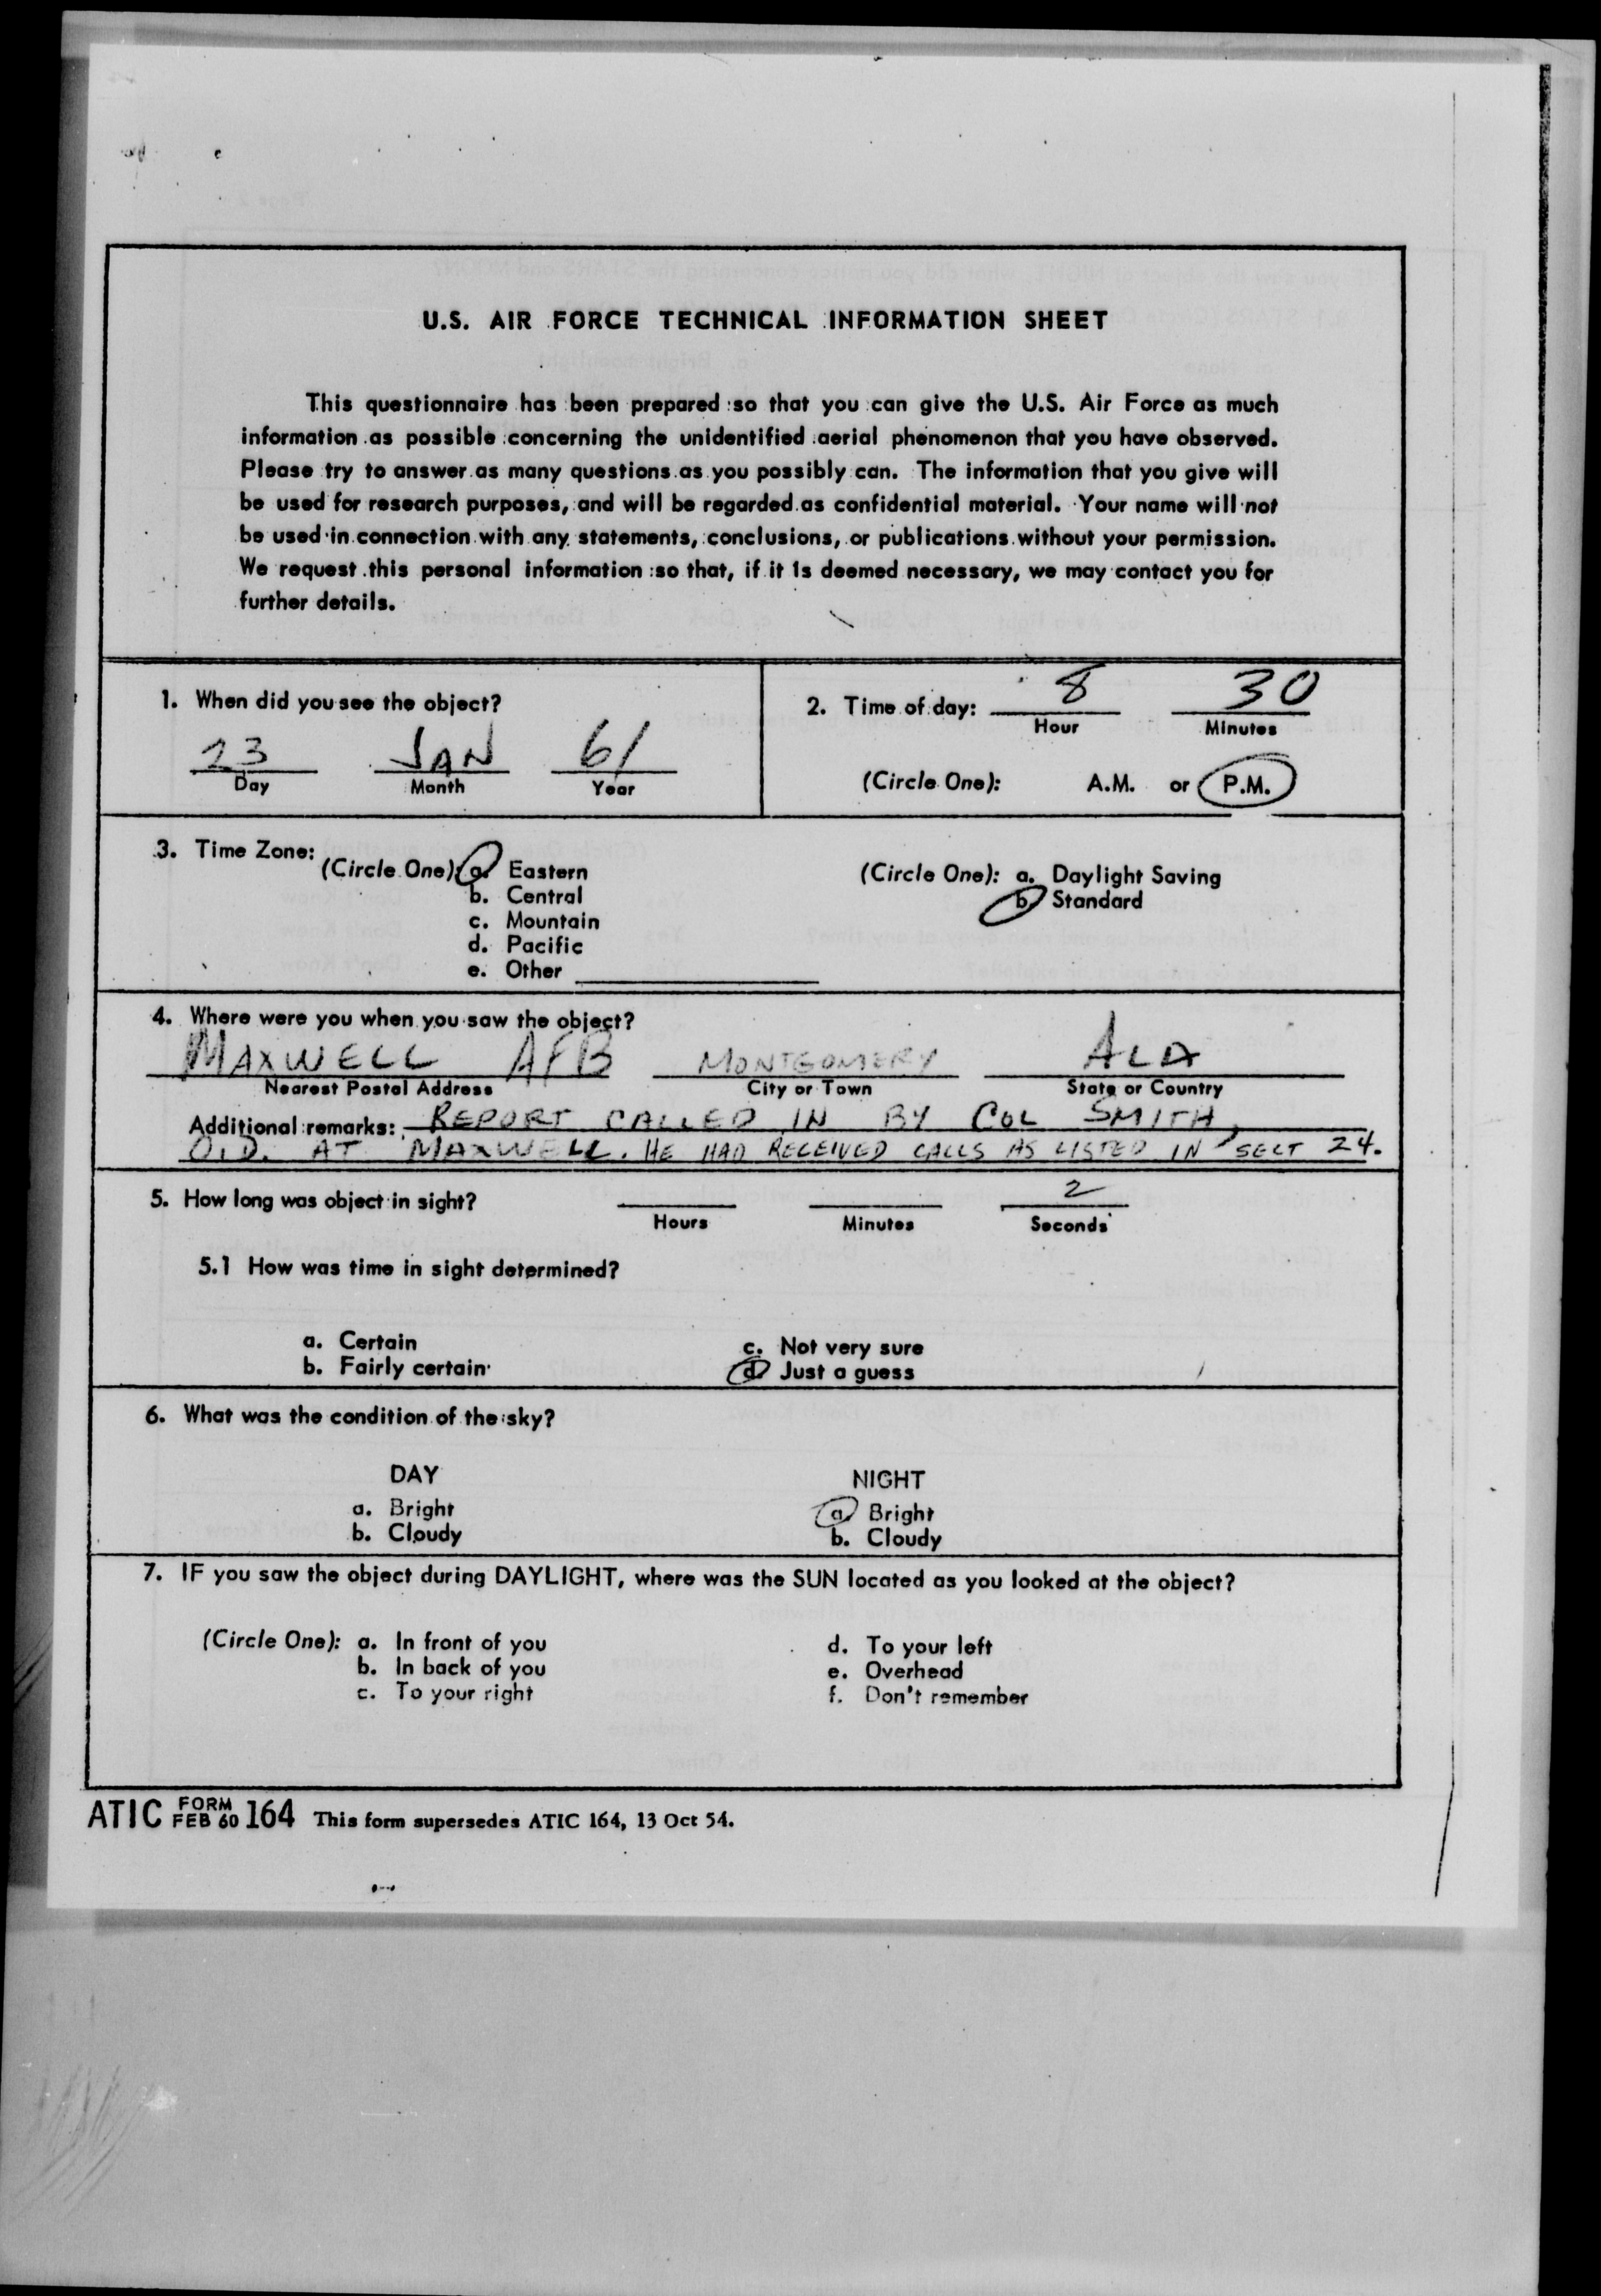 U.S. AIR FORCE TECHNICAL INFORMATION SHEET
This questionnaire has been prepared so that you can give the U.S. Air Force as much
information as possible concerning the unidentified aerial phenomenon that you have observed.
Please try to answer as many questions as you possibly can. The information that you give will
be used for research purposes, and will be regarded as confidential material. Your name will not
be used in connection with any statements, conclusions, or publications without your permission.
We request this personal information so that, if it is deemed necessary, we may contact you for
further details.
1. When did you see the object?
23 JAN 61
Day Month Year
2. Time of day: 8 30
Hour Minutes
(Circle One): A.M. or P.M.
3. Time Zone:
(Circle One): a. Eastern
b. Central
c. Mountain
d. Pacific
e. Other
(Circle One): a. Daylight Saving
b. Standard
4. Where were you when you saw the object?
MAXWELL AFB MONTGOMERY ALA
Nearest Postal Address City or Town State or Country
Additional remarks: REPORT CALLED IN BY COL SMITH,
O.D. AT MAXWELL. HE HAD RECEIVED CALLS AS LISTED IN SECT 24.
5. How long was object in sight? 2
Hours Minutes Seconds
5.1 How was time in sight determined?
a. Certain
b. Fairly certain
c. Not very sure
d. Just a guess
6. What was the condition of the sky?
DAY
a. Bright
b. Cloudy
NIGHT
a. Bright
b. Cloudy
7. IF you saw the object during DAYLIGHT, where was the SUN located as you looked at the object?
(Circle One): a. In front of you
b. In back of you
c. To your right
d. To your left
e. Overhead
f. Don't remember
ATIC FORM FEB 60 164 This form supersedes ATIC 164, 13 Oct 54.